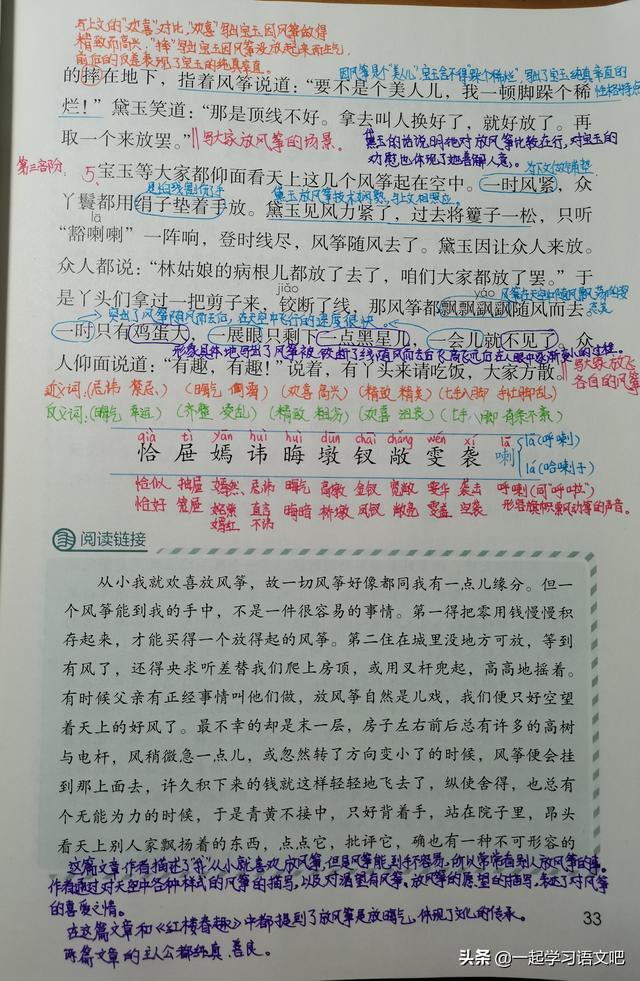 与上文的“欢喜”对比,“欢喜”写出宝玉因风筝做得
精致而高兴,“摔”写出宝玉因风筝没放起来而生气,
前后的反差表现了宝玉的纯真率直。
因风筝是个“美人儿”,宝玉舍不得“跺个稀烂”,写出了宝玉纯真率直的
性格特点
的摔在地下,指着风筝说道:“要不是个美人儿,我一顿脚跺个稀
烂!”黛玉笑道:“那是顶线不好。拿去叫人换好了,就好放了。再
取一个来放罢。”
写大家放风筝的场景。
黛玉的话说明她对放风筝比较在行,对宝玉的
劝慰也体现了她善解人意。
第三部分
为下文做铺垫
5、宝玉等大家都仰面看天上这几个风筝起在空中。一时风紧,众
是怕线割伤手
黛玉放风筝技术娴熟,与上文相照应。
丫鬟都用绢子垫着手放。黛玉见风力紧了,过去将籰子一松,只听
lā
“豁喇喇”一阵响,登时线尽,风筝随风去了。黛玉因让众人来放。
众人都说:“林姑娘的病根儿都放了去了,咱们大家都放了罢。”于
jiǎo
yáo
是丫头们拿过一把剪子来,铰断了线,那风筝都飘飘飖飖随风而去。
突出了风筝随风而去后,在天空中飞行的速度很快。
一时只有鸡蛋大,一展眼只剩下一点黑星儿,一会儿就不见了。众
形象具体地写出了风筝被铰断了线,随风而去后飞高飞远
人仰面说道:“有趣,有趣!”说着,有丫头来请吃饭,大家方散。
写大家放飞
各自的风筝
近义词:(忌讳 禁忌) (晦气 倒霉) (欢喜 高兴) (精致 精美) (七手八脚 手忙脚乱)
反义词:(晦气 幸运) (齐整 凌乱) (精致 粗劣) (欢喜 沮丧) (七手八脚 有条不紊)
qià tì yān huì huì dūn chāi chǎng wén xí lā
恰 屉 嫣 讳 晦 墩 钗 敞 雯 袭 喇
lā(呼喇)
lá(哈喇子)
恰似 抽屉 嫣然 忌讳 晦气 高墩 金钗 宽敞 雯华 袭击 呼喇(同“呼啦”)
恰好 笼屉 直言 晦暗 桥墩 凤钗 敞亮 空袭 形容旗帜乘风动等的声音。
嫣红 不讳
阅读链接
从小我就欢喜放风筝,故一切风筝好像都同我有一点儿缘分。但一
个风筝能到我的手中,不是一件很容易的事情。第一得把零用钱慢慢积
存起来,才能买得一个放得起的风筝。第二住在城里没地方可放,等到
有风了,还得央求听差替我们爬上房顶,或用叉杆兜起,高高地摇着。
有时候父亲有正经事情叫他们做,放风筝自然是儿戏,我们便只好空望
着天上的好风了。最不幸的却是末一层,房子左右前后总有许多的高树
与电杆,风稍微急一点儿,或忽然转了方向变小了的时候,风筝便会挂
到那上面去,许久积下来的钱就这样轻轻地飞去了,纵使舍得,也总有
个无能为力的时候,于是青黄不接中,只好背着手,站在院子里,昂头
看天上别人家飘扬着的东西,点点它,批评它,确也有一种不可形容的
这篇文章作者描述了“我”从小就喜欢放风筝,但是风筝能到手不容易,所以常常看别人放风筝的事。
作者通过对天空中各种样式的风筝的描写,以及对渴望有风筝、放风筝的愿望的描写,表达了对风筝
的喜爱之情。
在这篇文章和《红楼春趣》中都提到了放风筝是放晦气,体现了文化的传承。
两篇文章的主人公都纯真、善良。
33
头条 @一起学习语文吧